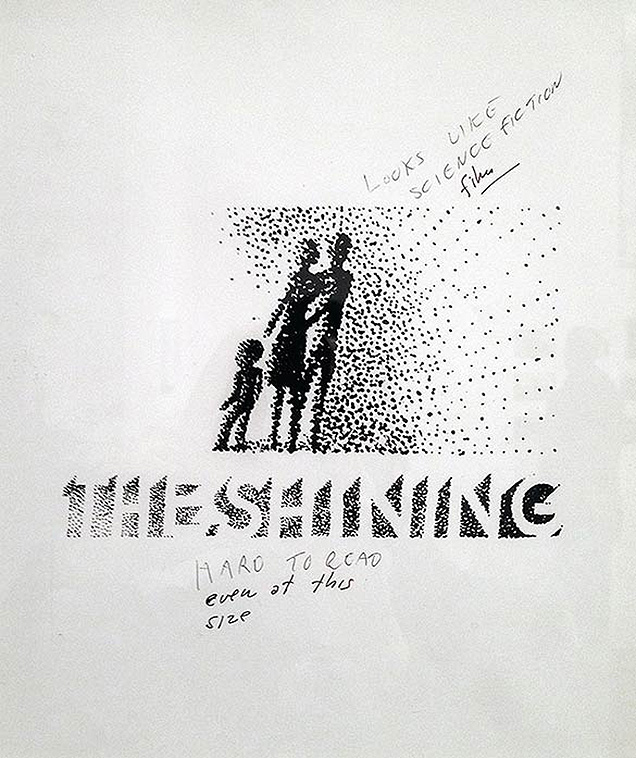 LOOKS LIKE
SCIENCE FICTION
film
THE SHINING
HARD TO READ
even at this
size